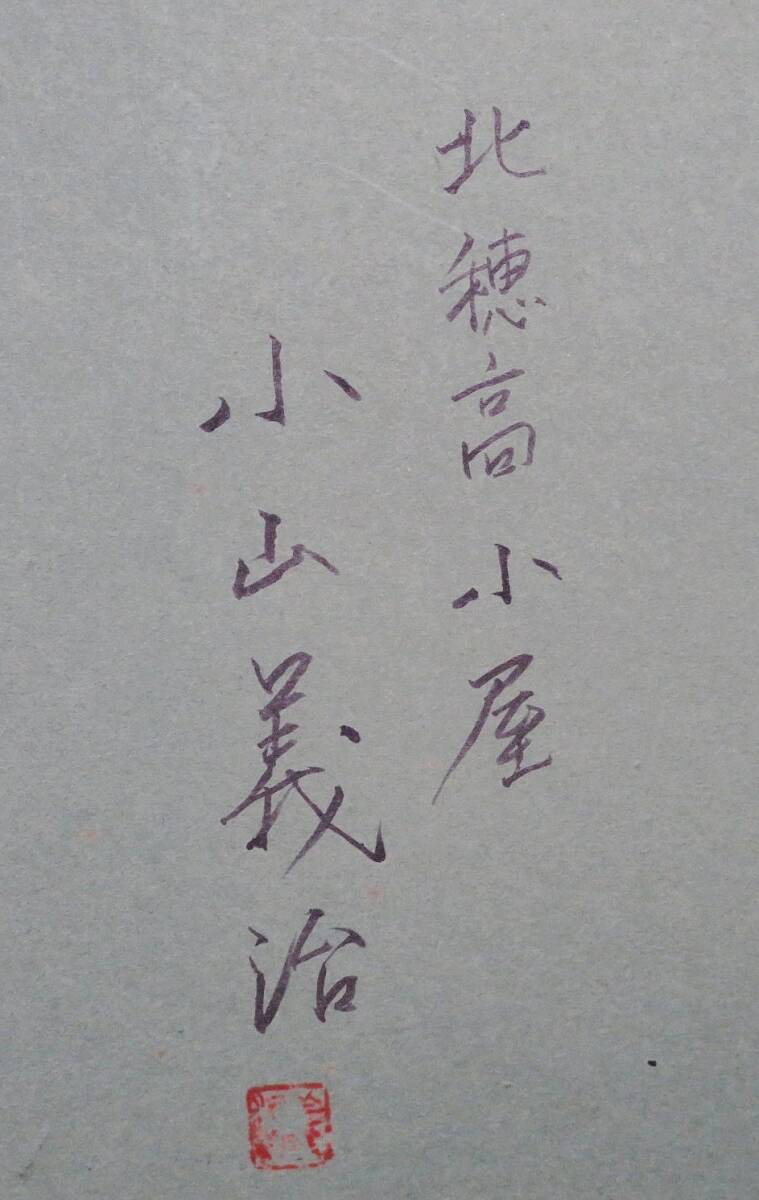 北穂高小屋
小山義治